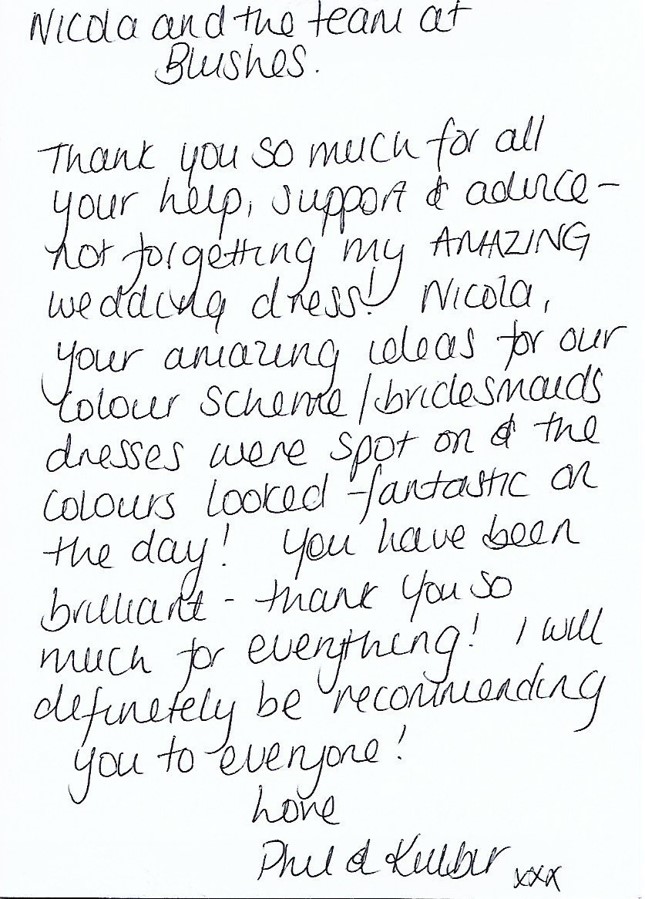 Nicola and the team at
Blushes.
Thank you so much for all
your help, support & advice -
not forgetting my AMAZING
wedding dress! Nicola,
your amazing ideas for our
colour scheme/bridesmaids
dresses were spot on & the
colours looked fantastic on
the day! You have been
brilliant - thank you so
much for everything! I will
definetely be recommending
you to everyone!
Love
Phil &
xxx